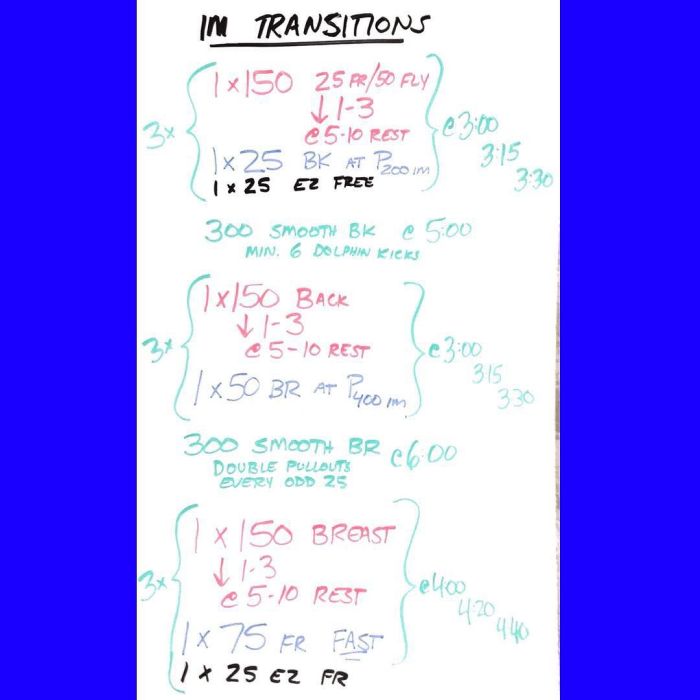 IM TRANSITIONS
1 x 150 25 FR/50 FLY
↓ 1-3
@ 5-10 REST
3x
@ 3:00
3:15
3:30
1 x 25 BK AT P200 IM
1 x 25 EZ FREE
300 SMOOTH BK @ 5:00
MIN. 6 DOLPHIN KICKS
1 x 150 BACK
↓ 1-3
@ 5-10 REST
3x
@ 3:00
3:15
3:30
1 x 50 BR AT P400 IM
300 SMOOTH BR @ 6:00
DOUBLE PULLOUTS
EVERY ODD 25
1 x 150 BREAST
↓ 1-3
@ 5-10 REST
3x
@ 4:00
4:20
4:40
1 x 75 FR FAST
1 x 25 EZ FR